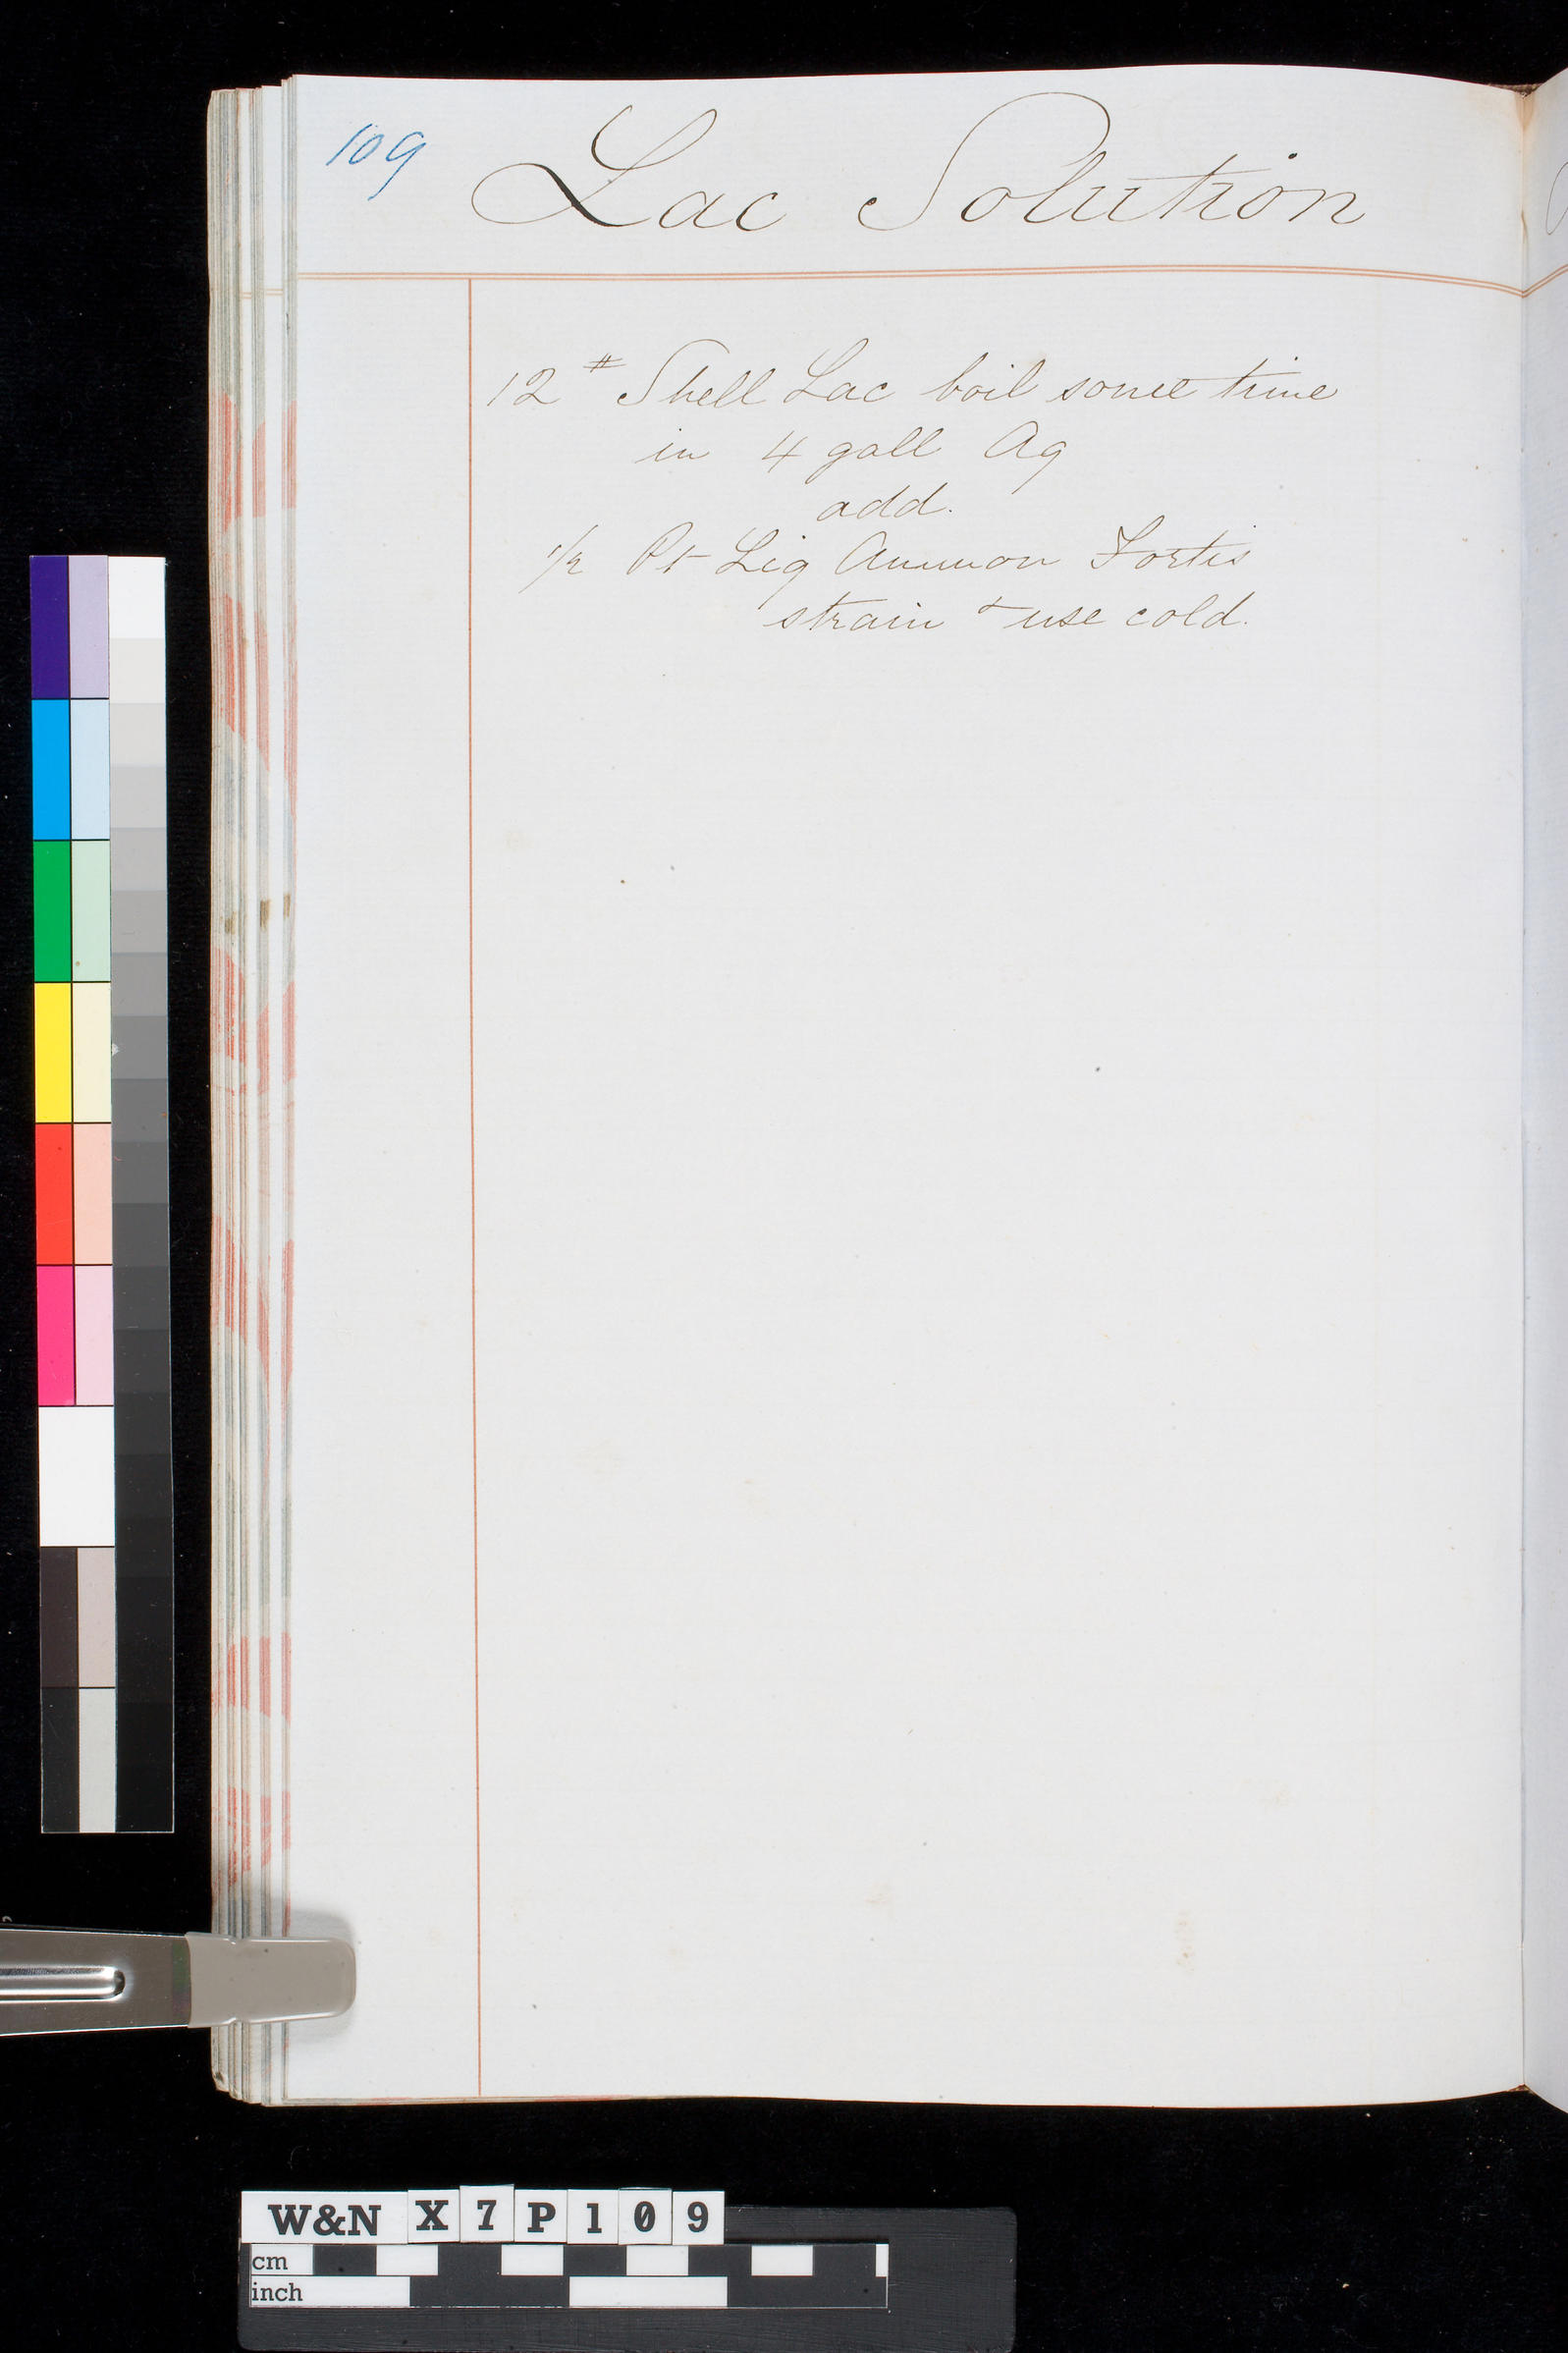 109
Lac Solution
12 # Shell Lac boil some time
in 4 gall Aq
add.
1/2 Pt Liq Ammon Fortis
strain & use cold.
W&N X7P109
cm
inch